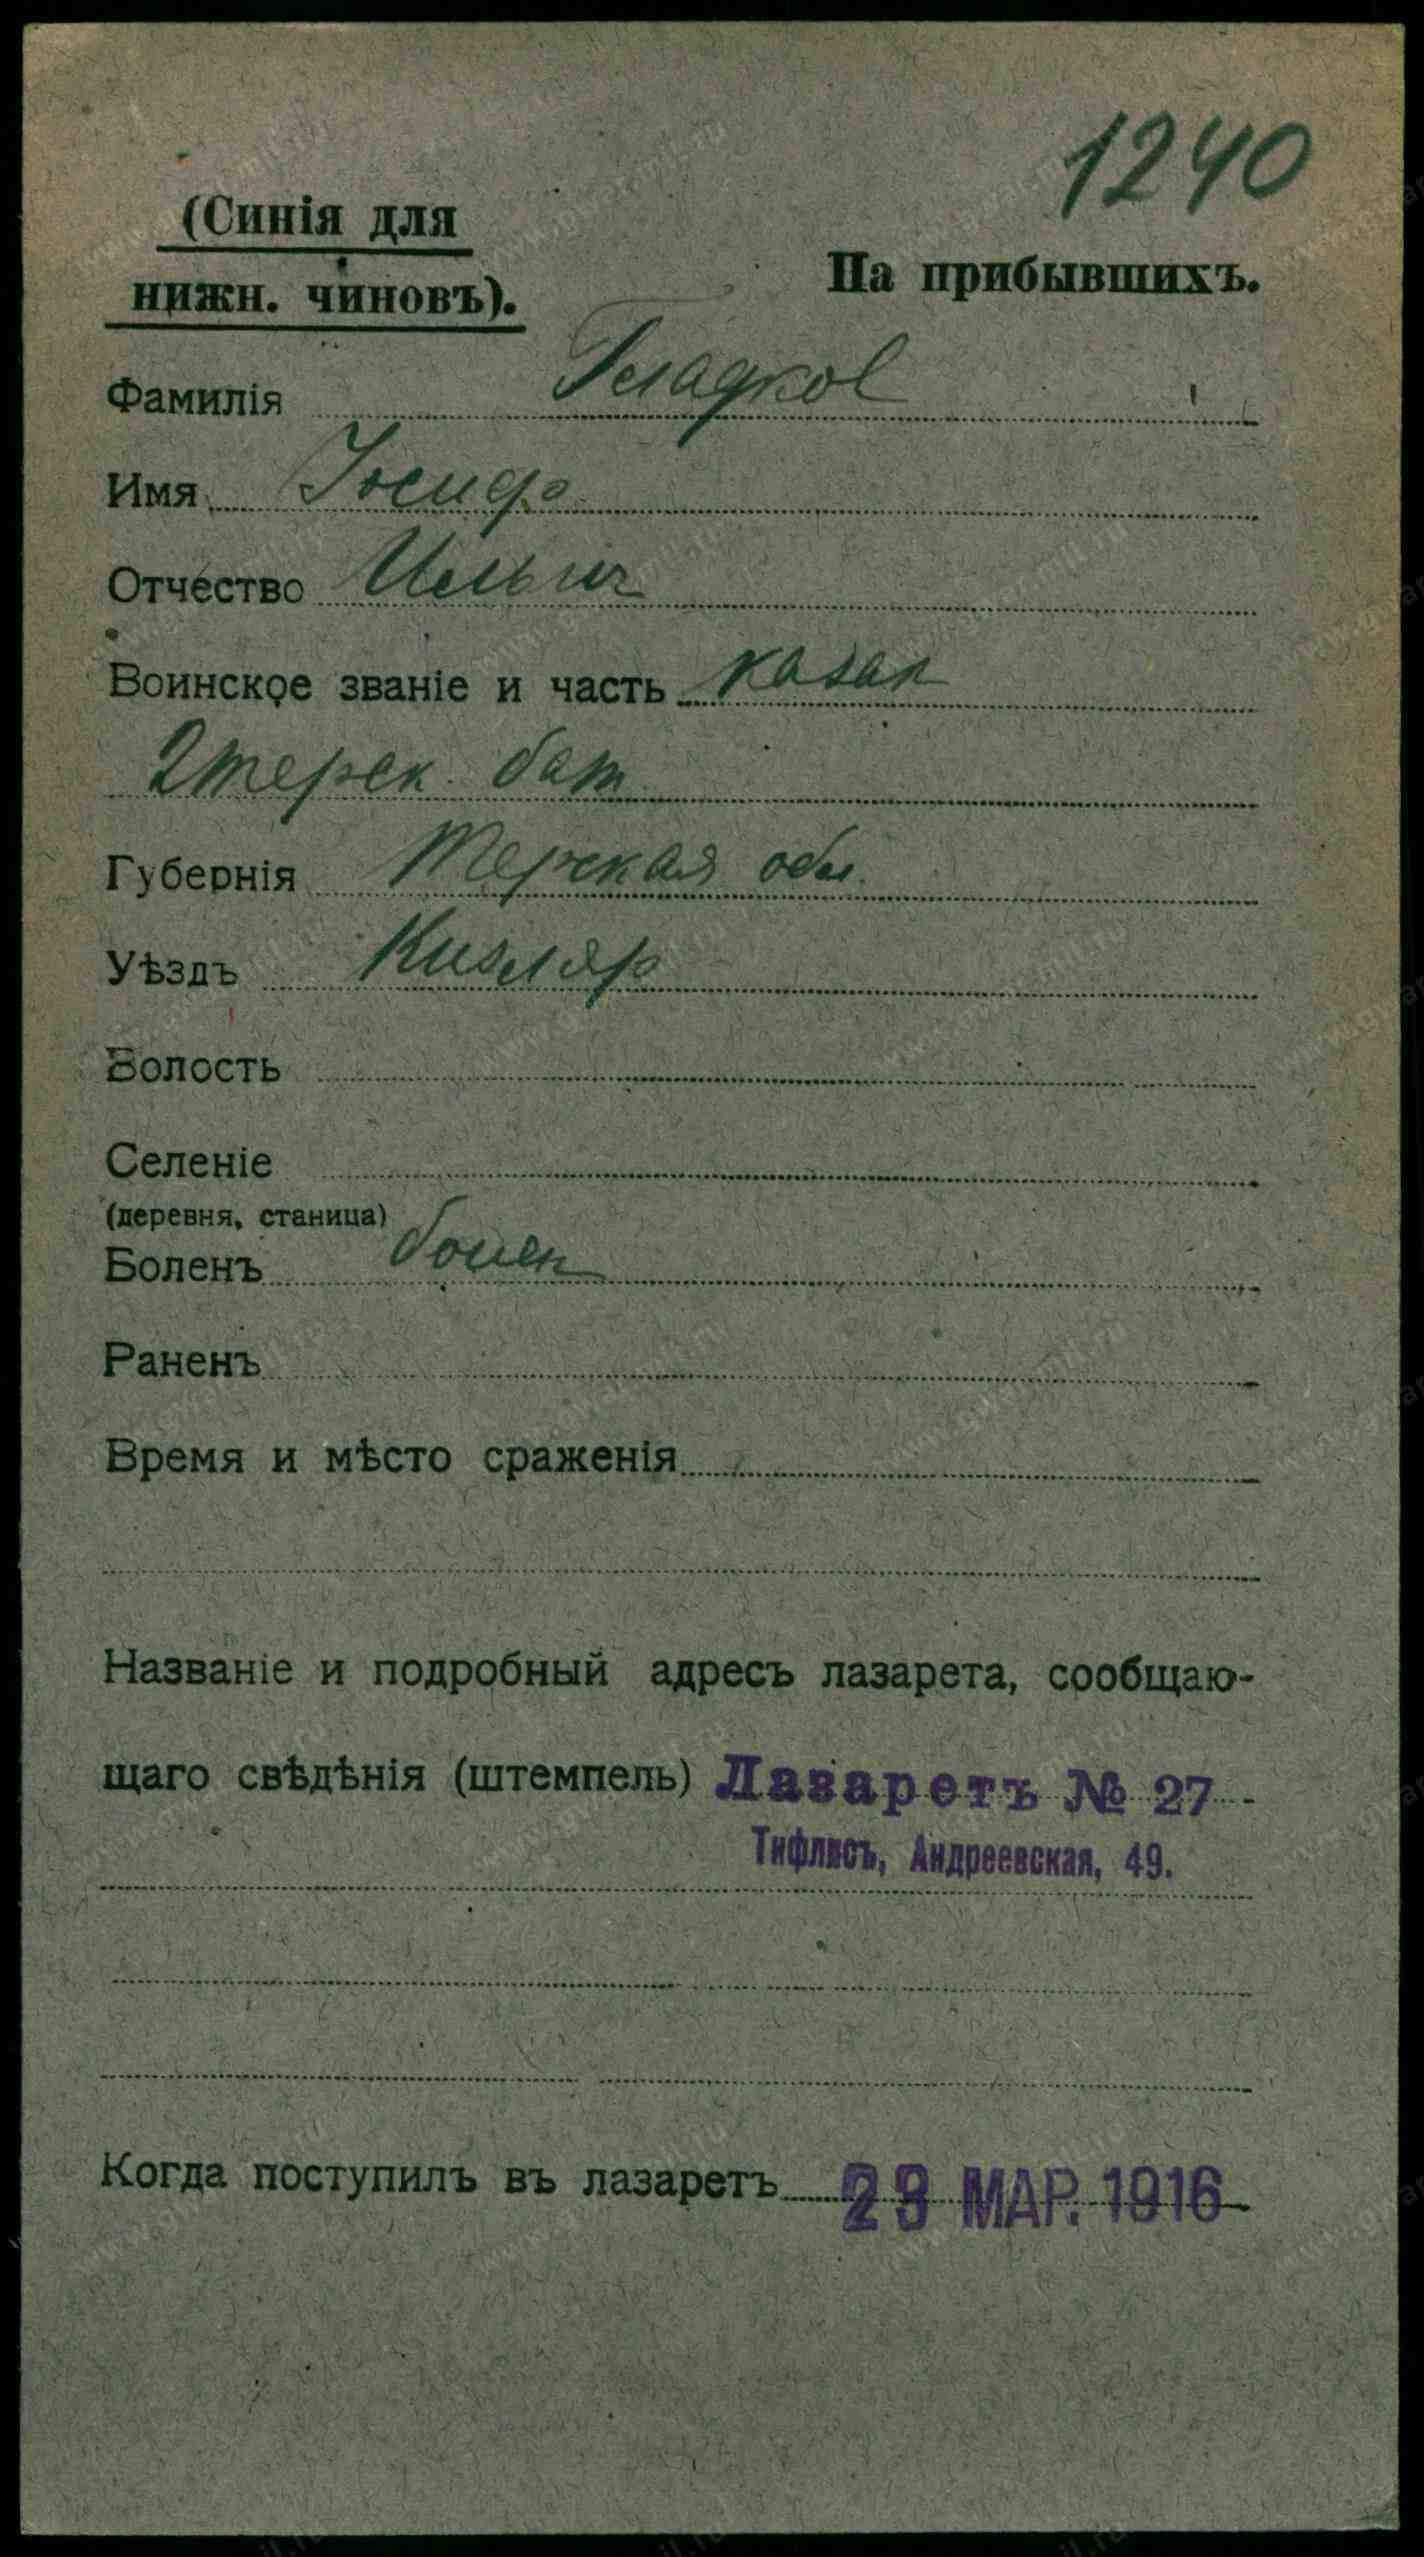 1240
(Синія для
нижн. чиновъ).
На прибывшихъ.
Фамилія Гладков
Имя Иосиф
Отчество Ильич
Воинское званіе и часть казак
2 терск. бат.
Губернія Терская обл.
Уѣздъ Кизляр
Волость
Селеніе
(деревня, станица)
Боленъ болен
Раненъ
Время и мѣсто сраженія
Названіе и подробный адресъ лазарета, сообщаю-
щаго свѣдѣнія (штемпель) Лазаретъ № 27
Тифлисъ, Андреевская, 49.
Когда поступилъ въ лазаретъ МАР. 1916